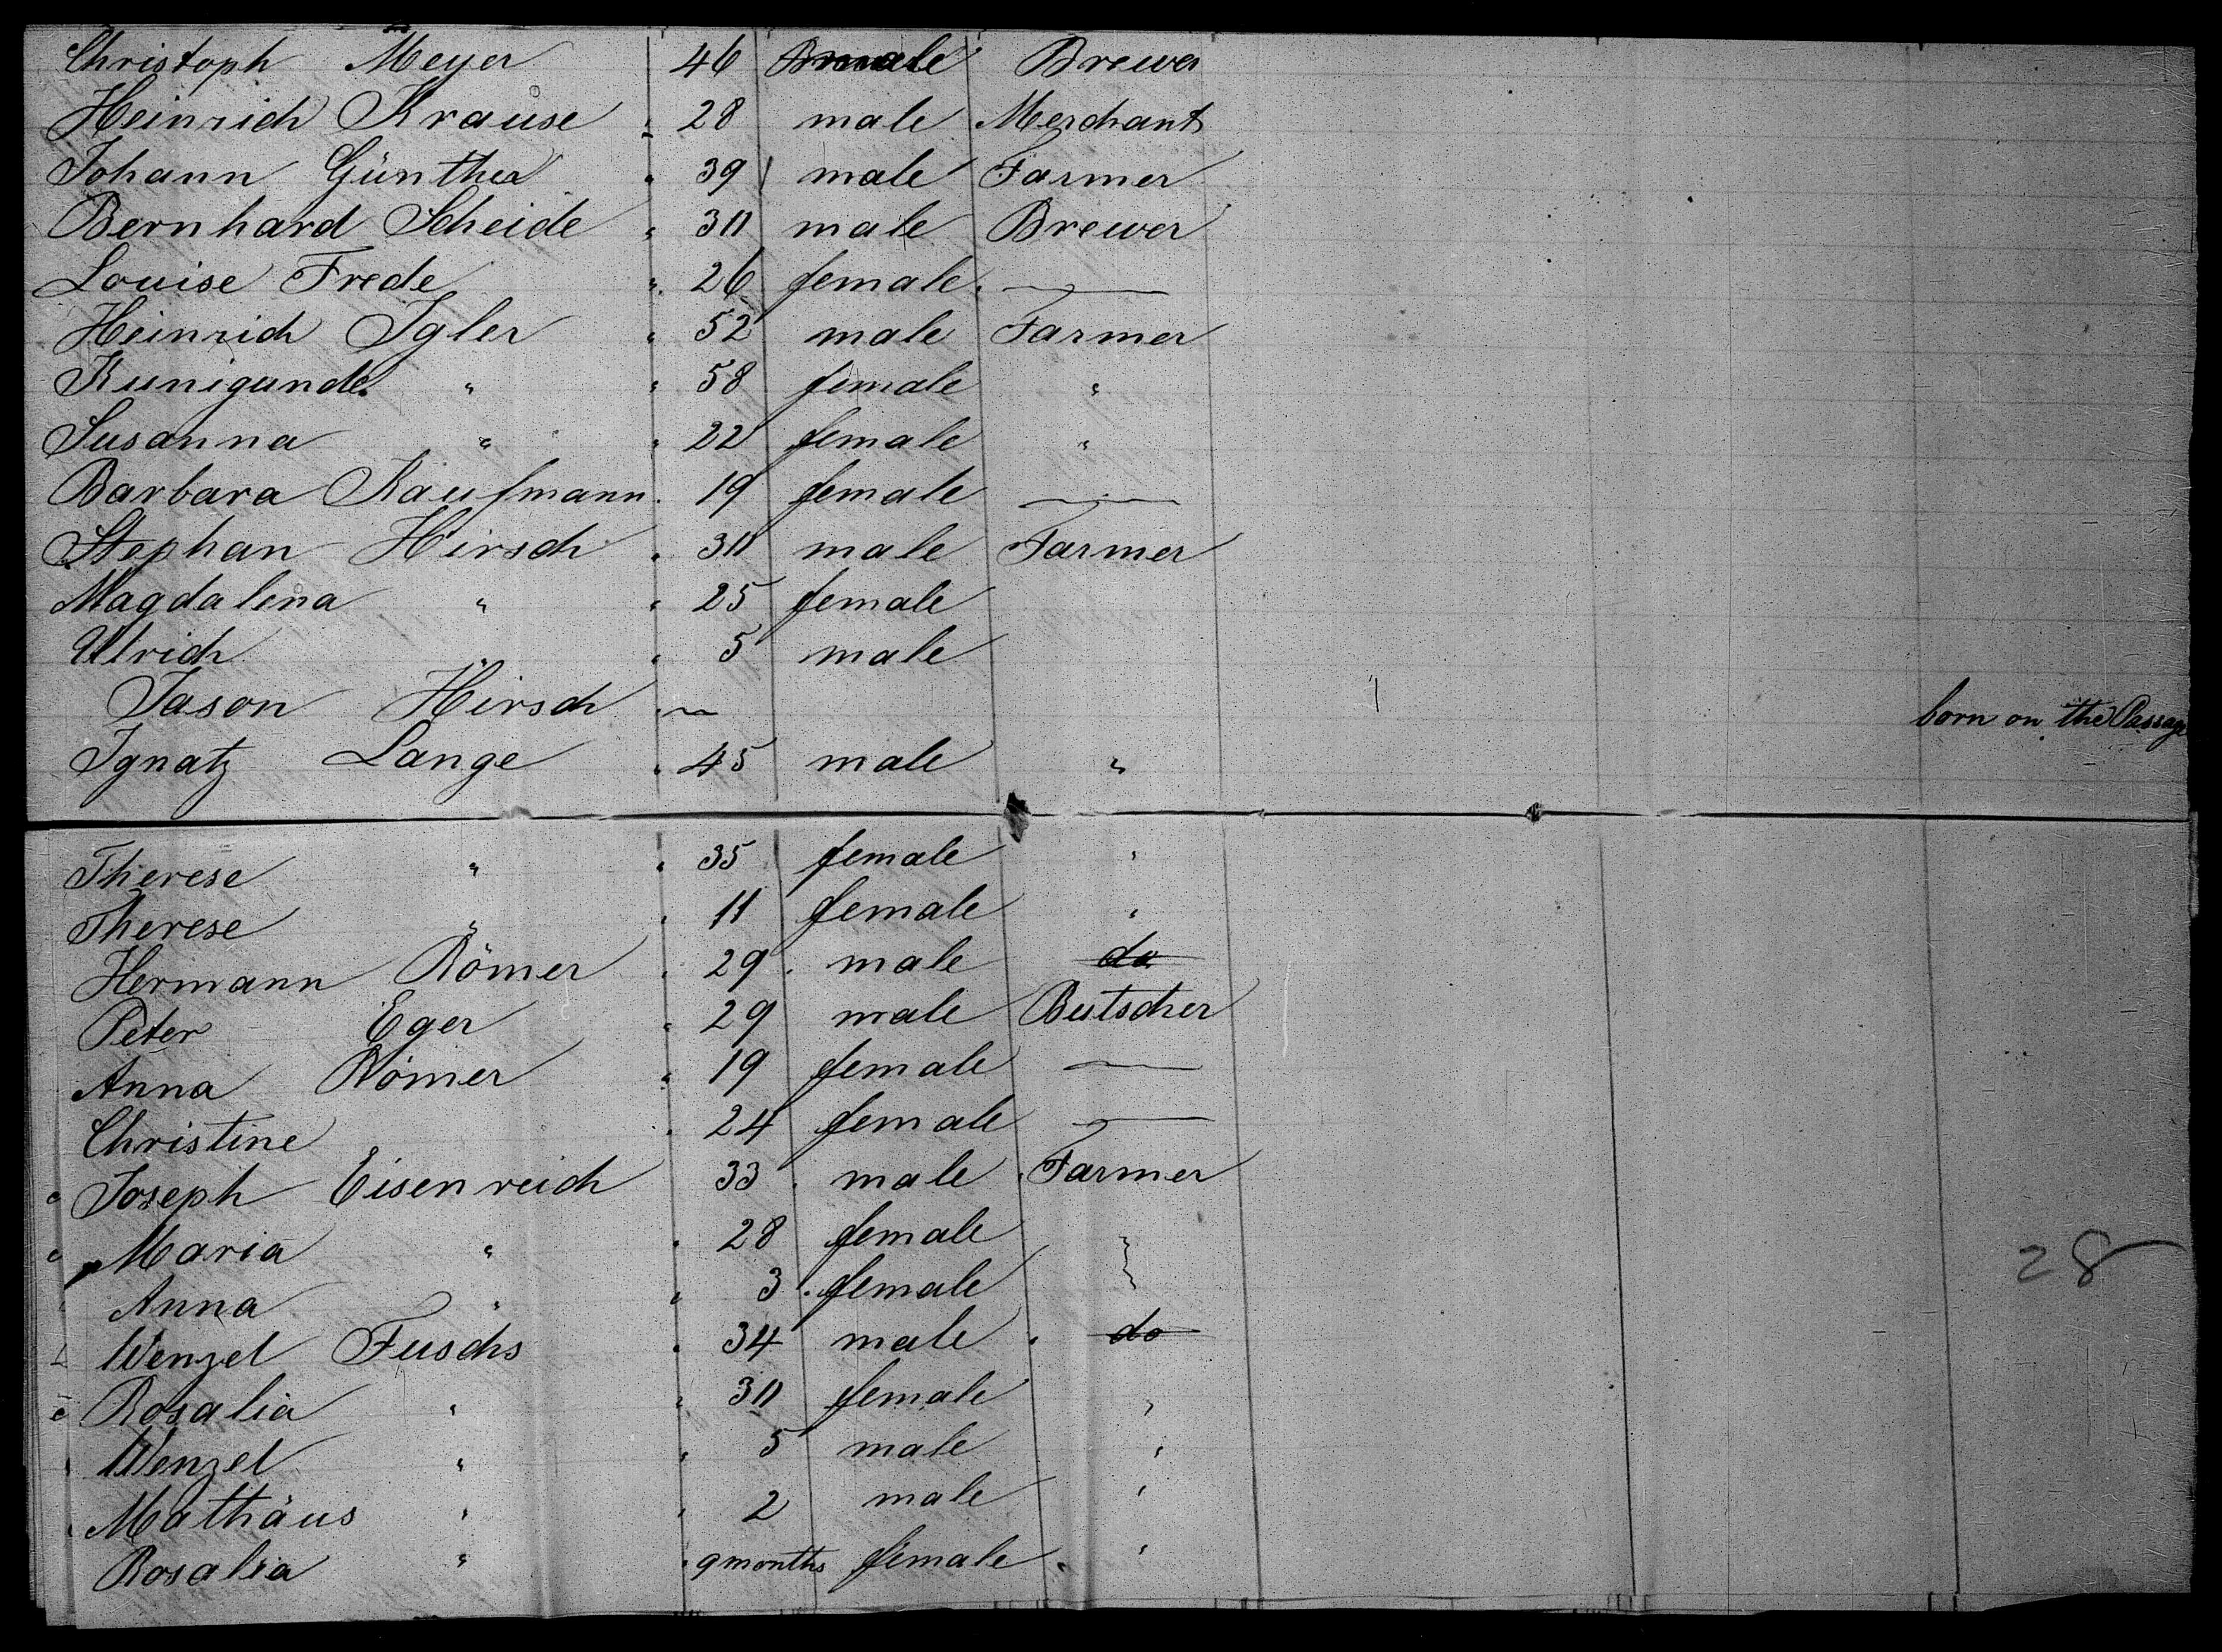 Christoph Meyer 46 male Brewer
Heinrich Krause " 28 male Merchant
Johann Günther " 39 male Farmer
Bernhard Scheide " 30 male Brewer
Louise Frede " 26 female —
Heinrich Igler " 52 male Farmer
Kunigunde " " 58 female "
Susanna " " 22 female "
Barbara Kaufmann " 19 female —
Stephan Hirsch " 30 male Farmer
Magdalena " " 25 female
Ulrich " " 5 male
Jason Hirsch " — born on the Passage
Ignatz Lange " 45 male "
Therese " " 35 female "
Therese " " 11 female "
Hermann Römer " 29 male do
Peter Eger " 29 male Butscher
Anna Römer " 19 female —
Christine " 24 female —
Joseph Eisenreich 33 male Farmer
Maria " " 28 female "
Anna " " 3 female "
28
Wenzel Fuschs " 34 male do
Rosalia " " 30 female "
Wenzel " " 5 male "
Mathäus " " 2 male "
Rosalia " " 9 months female "